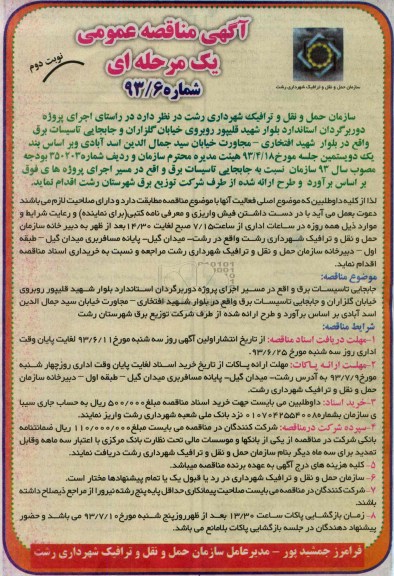 آگهی مناقصه عمومی
یک مرحله ای
شماره ۹۳/۶
نوبت دوم
سازمان حمل و نقل و ترافیک شهرداری رشت
سازمان حمل و نقل و ترافیک شهرداری رشت در نظر دارد در راستای اجرای پروژه
دوربرگردان استاندارد بلوار شهید قلیپور روبروی خیابان گلزاران و جابجایی تاسیسات برق
واقع در بلوار شهید افتخاری - مجاورت خیابان سید جمال الدین اسد آبادی وبر اساس بند
یک دویستمین جلسه مورخ ۹۳/۴/۱۸ هیئت مدیره محترم سازمان و ردیف شماره ۳۵۰۲۰۳ بودجه
مصوب سال ۹۳ سازمان نسبت به جابجایی تاسیسات برق و اقع در مسیر اجرای پروژه ها ی فوق
بر اساس برآورد و طرح ارائه شده از طرف شرکت توزیع برق شهرستان رشت اقدام نماید.
لذا از کلیه داوطلبین که موضوع اصلی فعالیت آنها با موضوع مناقصه مطابقت دارد و دارای صلاحیت لازم می باشند
دعوت بعمل می آید با در دست داشتن فیش واریزی و معرفی نامه کتبی(برای نماینده) و رعایت شرایط و
موارد ذیل همه روزه در ساعات اداری از ساعت ۷/۱۵ صبح لغایت ۱۴/۳۰ بعد از ظهر به دبیر خانه سازمان
حمل و نقل و ترافیک شهرداری رشت واقع در رشت- میدان گیل- پایانه مسافربری میدان گیل - طبقه
اول - دبیرخانه سازمان حمل و نقل و ترافیک شهرداری رشت مراجعه و نسبت به خریداری اسناد مناقصه
اقدام نماید.
موضوع مناقصه:
جابجایی تاسیسات برق و اقع در مسیر اجرای پروژه دوربرگردان استاندارد بلوار شهید قلیپور روبروی
خیابان گلزاران و جابجایی تاسیسات برق واقع در بلوار شهید افتخاری - مجاورت خیابان سید جمال الدین
اسد آبادی بر اساس برآورد و طرح ارائه شده از طرف شرکت توزیع برق شهرستان رشت
شرایط مناقصه:
۱-مهلت دریافت اسناد مناقصه: از تاریخ انتشار اولین آگهی روز سه شنبه مورخ ۹۳/۶/۱۱ لغایت پایان وقت
اداری روز سه شنبه مورخ ۹۳/۶/۲۵.
۲-مهلت ارائه پاکات: مهلت ارائه پاکات از تاریخ خرید اسناد لغایت پایان وقت اداری روز چهار شنبه
مورخ ۹۳/۷/۹ به آدرس رشت- میدان گیل- پایانه مسافربری میدان گیل - طبقه اول - دبیرخانه سازمان
حمل و نقل و ترافیک شهرداری رشت.
۳-خرید اسناد: داوطلبین می بایست جهت خرید اسناد مناقصه مبلغ ۵۰۰/۰۰۰ ریال به حساب جاری سیبا
ی سازمان بشماره ۰۱۰۷۰۴۲۵۵۴۰۰۸ نزد بانک ملی شعبه شهرداری رشت واریز نمایند.
۴-سپرده شرکت در مناقصه: شرکت کنندگان در مناقصه می بایست مبلغ ۱۱۰/۰۰۰/۰۰۰ ریال ضمانتنامه
بانکی شرکت در مناقصه از یکی از بانکها و موسسات مالی تحت نظارت بانک مرکزی با اعتبار سه ماهه وقابل
تمدید برای سه ماه دیگر بنام سازمان حمل و نقل و ترافیک شهرداری رشت دریافت نمایند.
۵- کلیه هزینه های درج آگهی به عهده برنده مناقصه میباشد.
۶- سازمان حمل و نقل و ترافیک شهرداری در رد یا قبول یک یا تمام پیشنهادها مختار است.
۷-شرکت کنندگان در مناقصه می بایست صلاحیت پیمانکاری حداقل پایه پنج رشته نیرو را از مراجع ذیصلاح داشته
باشند.
۸- زمان بازگشایی پاکات ساعت ۱۳/۳۰ بعد از ظهر روز پنج شنبه مورخ ۹۳/۷/۱۰ می باشد و حضور
پیشنهاد دهندگان در جلسه بازگشایی پاکات بلامانع می باشد.
فرامرز جمشید پور - مدیر عامل سازمان حمل و نقل و ترافیک شهرداری رشت